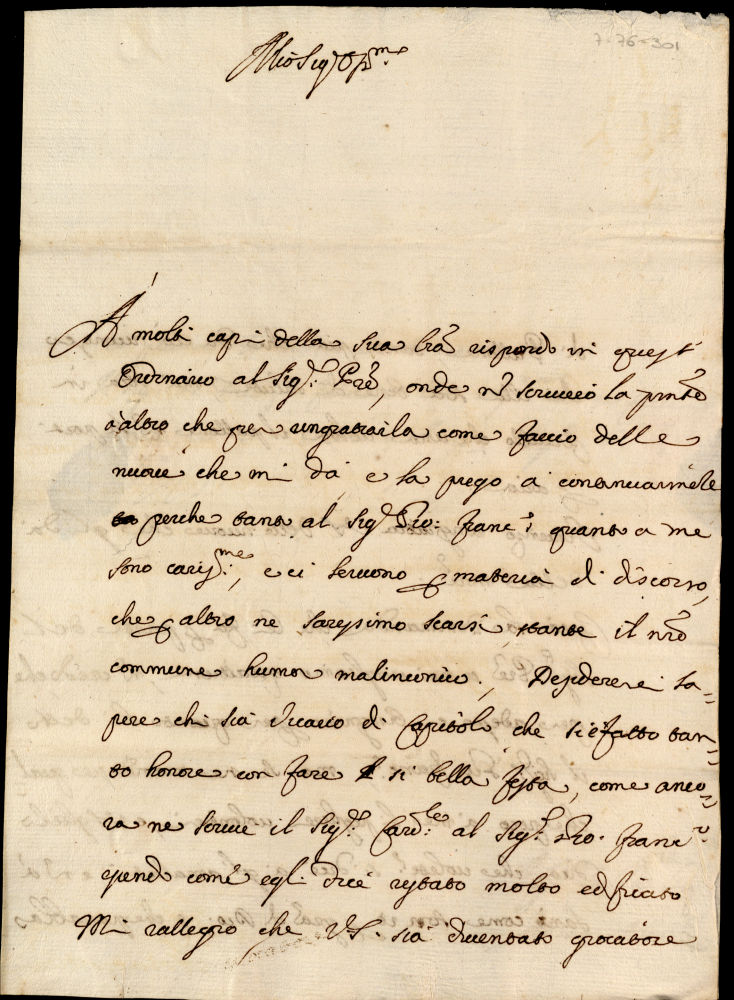 7-76-301
Mio Sig.r Oss.mo
A molti capi della sua lra rispondo in quest
Ordinario al Sig.r Prè, onde nò servirà la pnte
o altro che per ringratiarla come faccio delle
nuove che mi dà, e la prego a continuarmele
perche tanto al Sig.r Gio: Franc.o quanto a me
sono cariss.me, e ci servono p materia di discorso,
che p altro ne saressimo scarsi, stante il nrõ
commune humor malinconico. Desidererei sa=
pere chi sia Vicario di Capitolo che si è fatto tan=
to honore con fare si bella festa, come anco=
ra ne scrive il Sig.r Card.le al Sig.r Gio. Franc.o
essendo come egli dice restato molto edificato
Mi rallegro che V.S. sia diventato giocatore